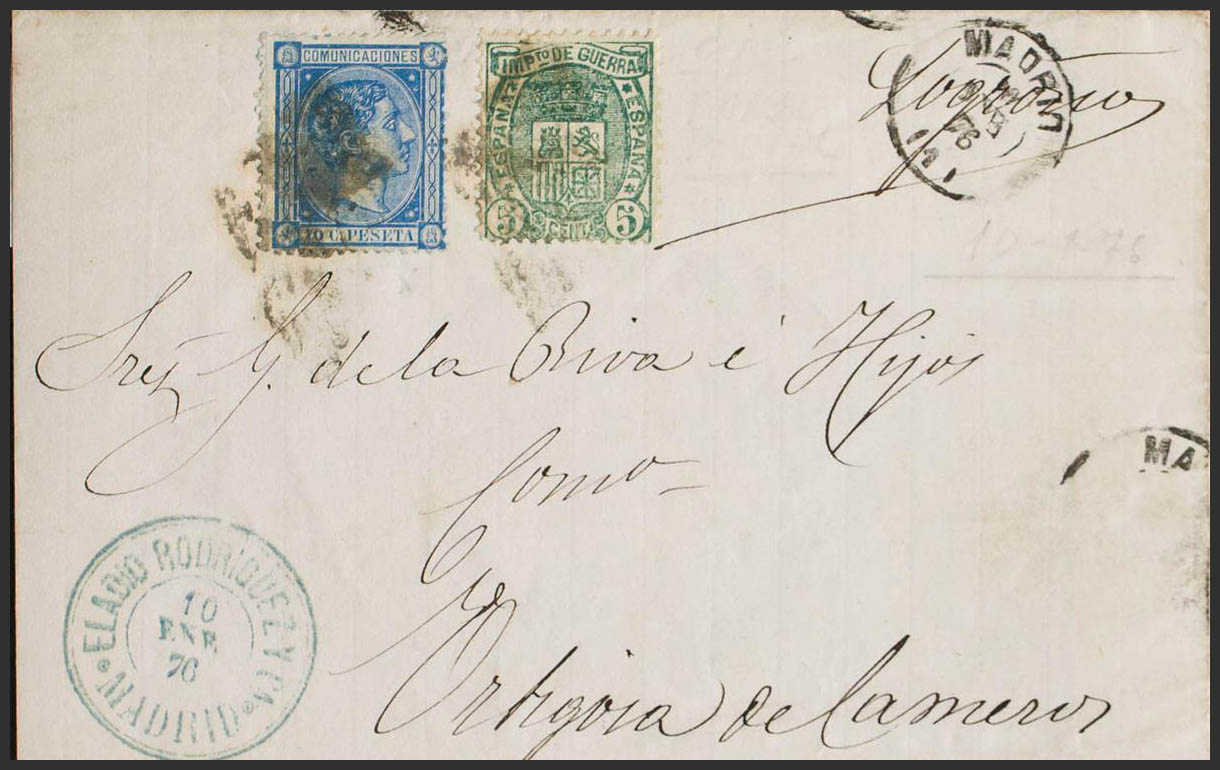 COMUNICACIONES
10 C. PESETA
IMPTO DE GUERRA
ESPAÑA
ESPAÑA
5 CENT. 5
MADRID
76
Logroño
Sres G. de la Riva é Hijos
Como
Ortigosa de Cameros
MA
ELADIO RODRIGUEZ Y CA
10
ENE
76
MADRID